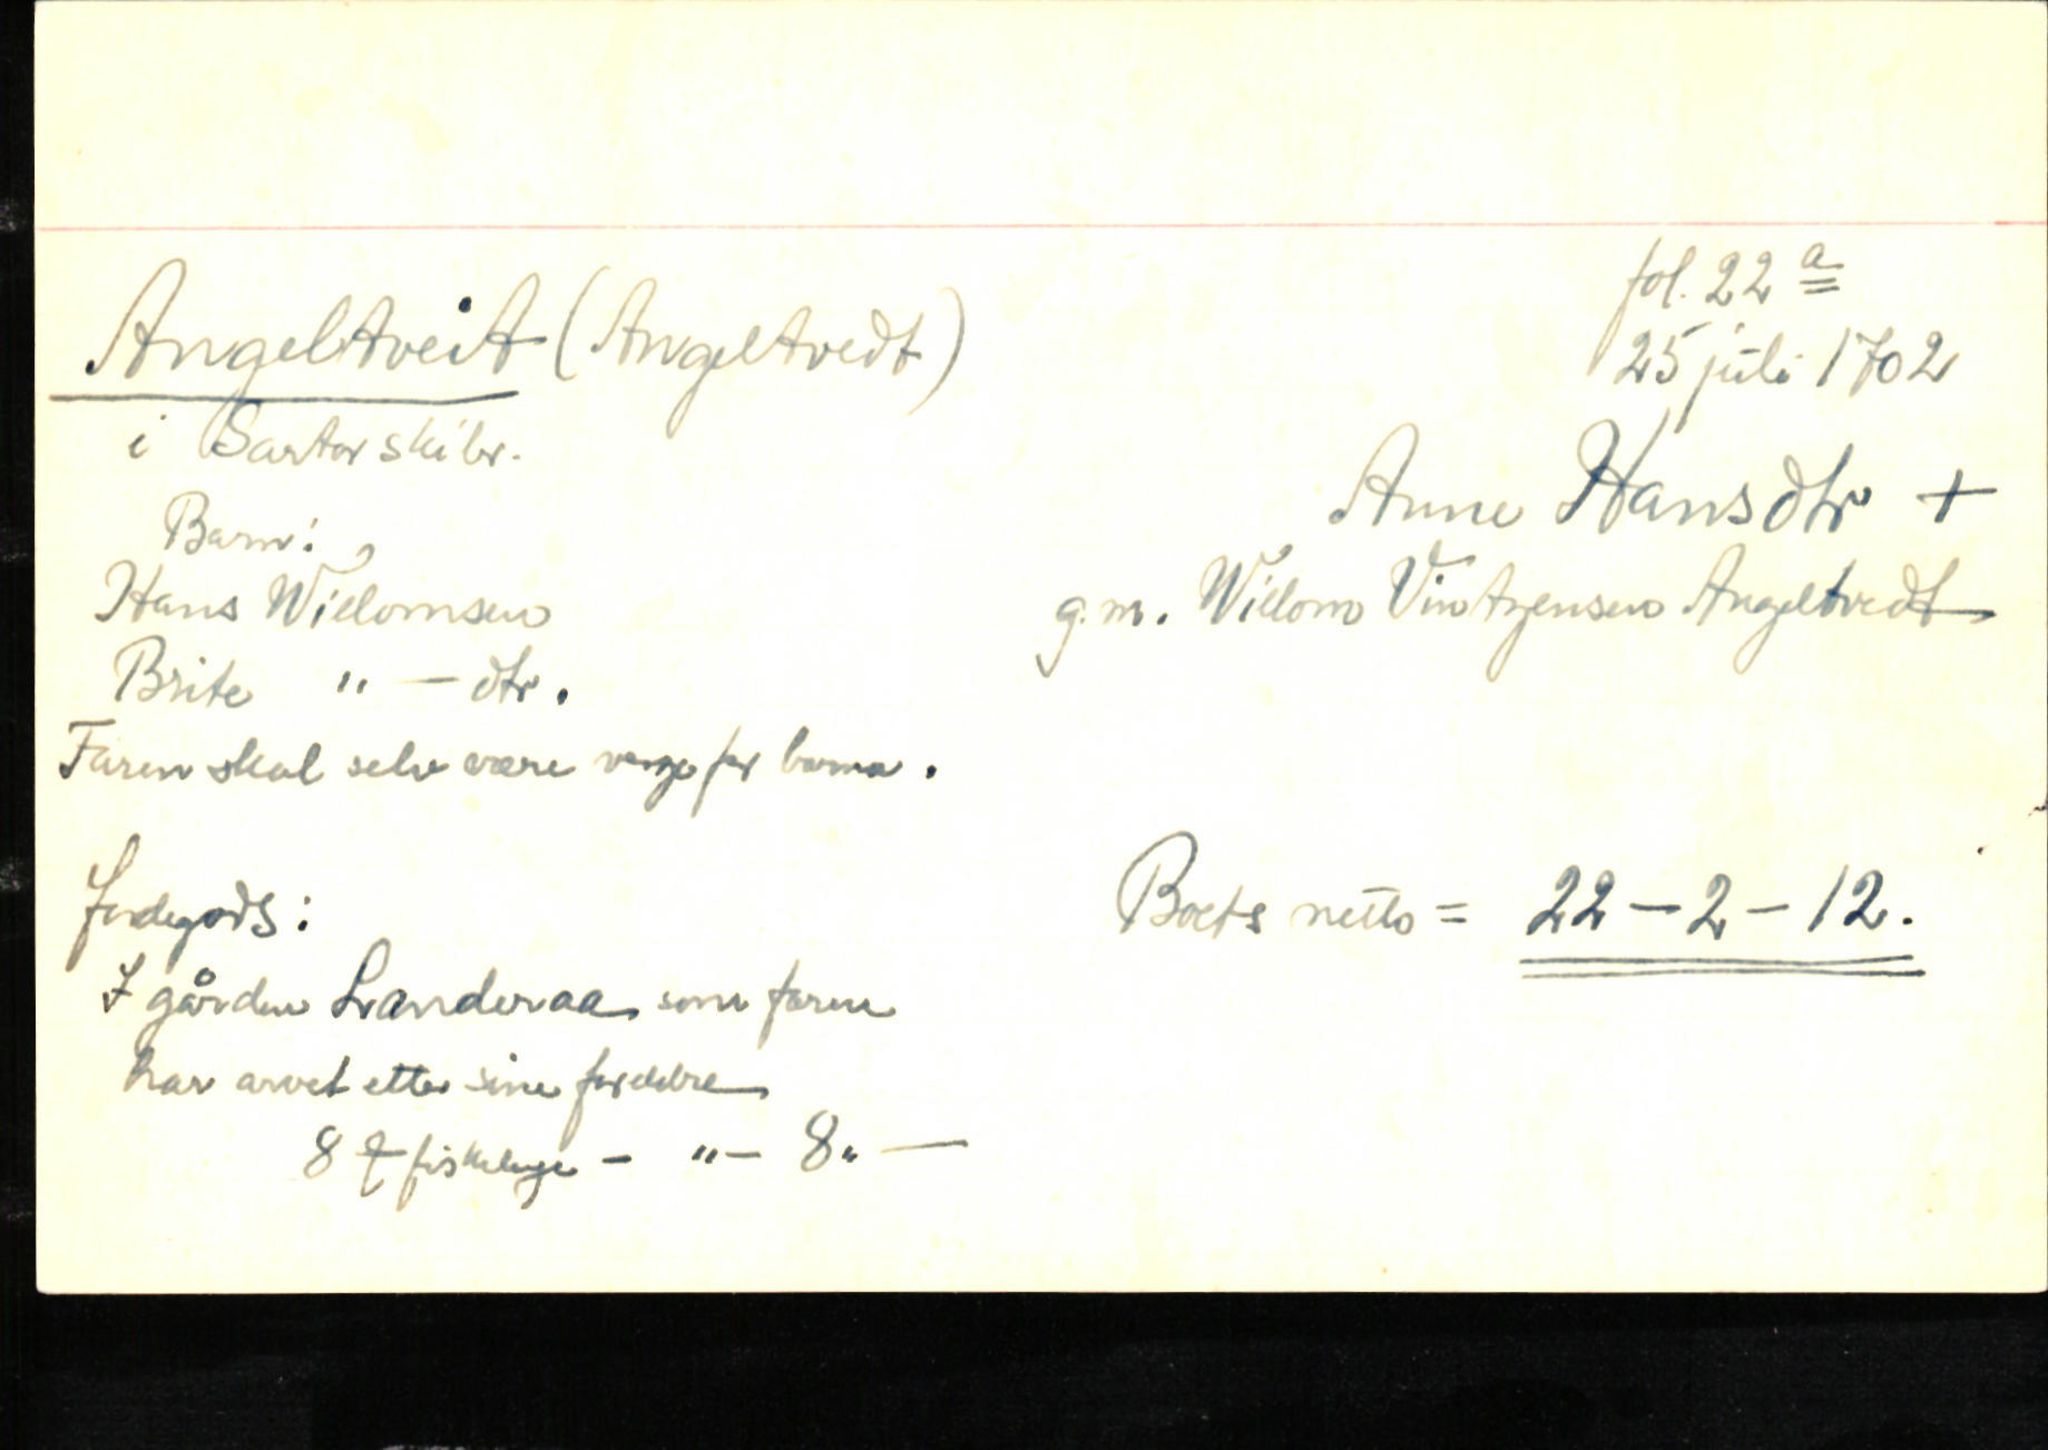 fol. 22 a
Angeltveit (Angeltvedt)
25 juli 1702
i Sartor skibr.
Anne Hansdtr +
Barn:
Hans Willomsen
g.m. Willom Vintzensen Angeltvedt
Brite " — dtr.
Faren skal selv være verge for barna.
Jordegods:
Boets netto = 22 – 2 – 12.
I gården Landeraa som faren
har arvet etter sine foreldre
8 fiskeleye – " – 8 " —